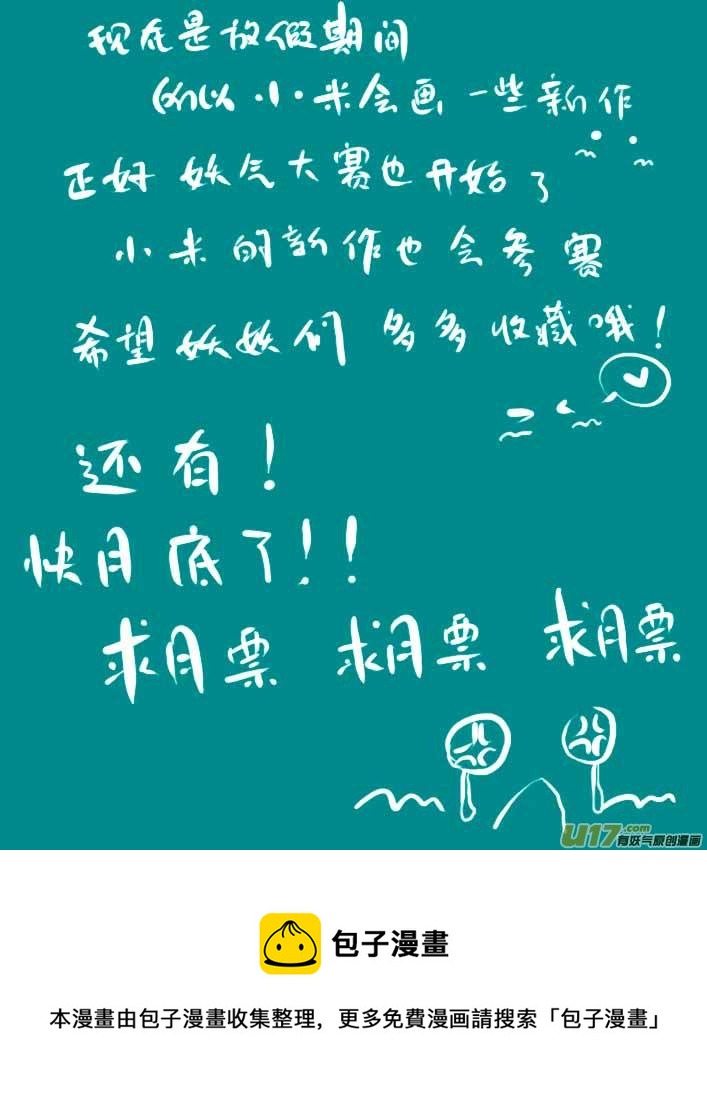 现在是放假期间
所以小米会画一些新作
正好妖气大赛也开始了
小米的新作也会参赛
希望妖妖们多多收藏哦!
还有!
快月底了!!
求月票 求月票 求月票
U17.com
有妖气原创漫画
包子漫畫
本漫畫由包子漫畫收集整理，更多免費漫画請搜索「包子漫畫」